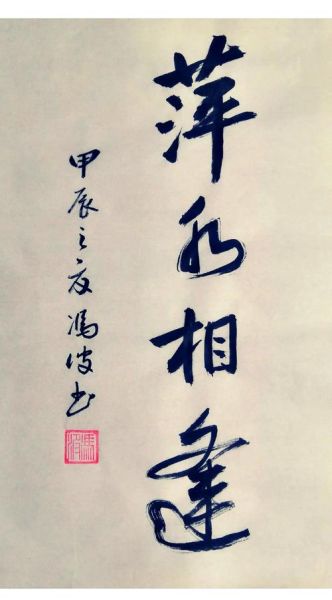 萍水相逢
甲辰之夏冯波书